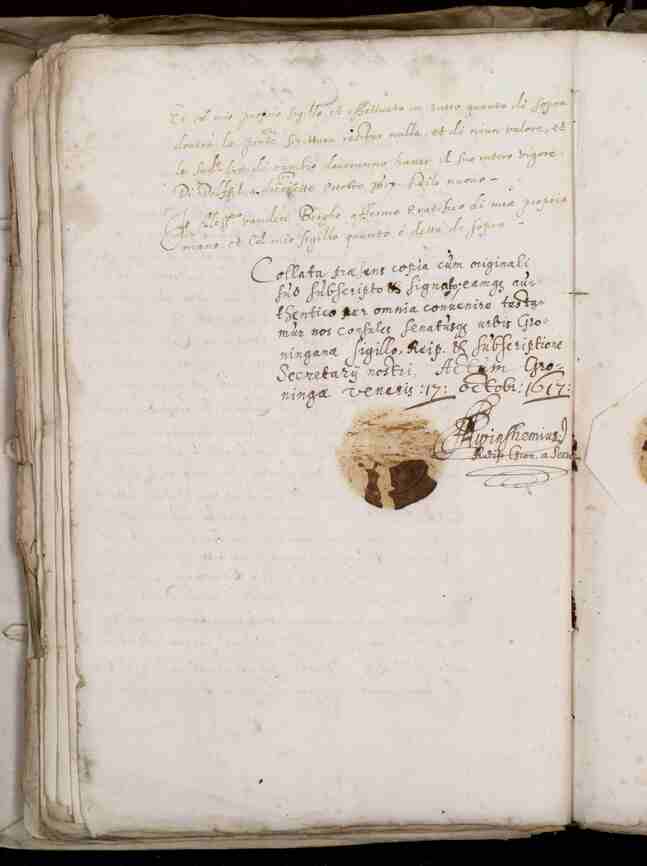 Et col mio proprio sigillo et effettuato in tutto quanto di sopra
la pnte scrittura nulla, et di niun valore, et
le di cambio doveranno haver il suo intero vigore.
Di Delfzil a Ottobre stilo nuovo -
vanden Berghe affermo e ratifico di mia propria
mano et col mio sigillo quanto è detto di sopra -
Collata præsens copia cum originali
suo subscripto & signato, eamqz au-
thentico per omnia convenire testa-
mur nos Consules Senatusqz urbis Gro-
ningana sigillo Reip. & subscriptione
Secretarij nostri. Actum Gro-
ningæ Veneris :17: Octobr: 1617:
Winshemius
Reip. Gron. a Secre